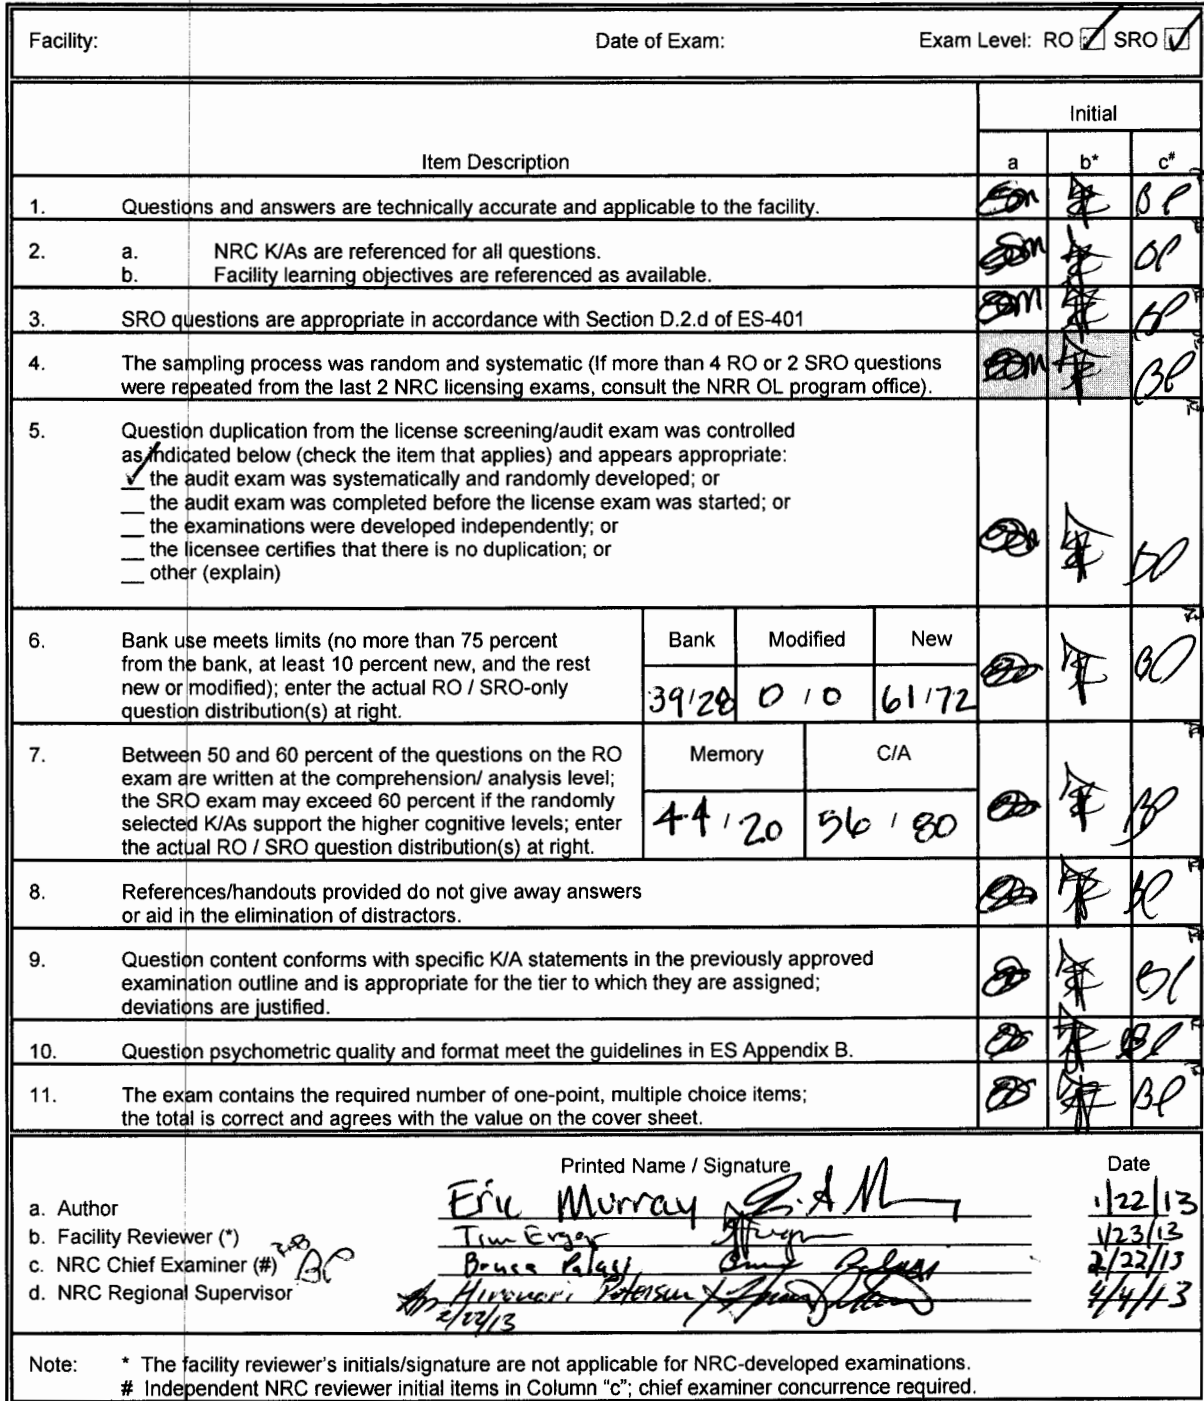 Facility: Date of Exam: Exam Level: RO ☑ SRO ☑
Initial
Item Description a b* c#
1. Questions and answers are technically accurate and applicable to the facility. BP
2. a. NRC K/As are referenced for all questions.
b. Facility learning objectives are referenced as available. BP
3. SRO questions are appropriate in accordance with Section D.2.d of ES-401 BP
4. The sampling process was random and systematic (If more than 4 RO or 2 SRO questions
were repeated from the last 2 NRC licensing exams, consult the NRR OL program office). BP
5. Question duplication from the license screening/audit exam was controlled
as indicated below (check the item that applies) and appears appropriate:
✓ the audit exam was systematically and randomly developed; or
__ the audit exam was completed before the license exam was started; or
__ the examinations were developed independently; or
__ the licensee certifies that there is no duplication; or
__ other (explain)
BP
6. Bank use meets limits (no more than 75 percent
from the bank, at least 10 percent new, and the rest
new or modified); enter the actual RO / SRO-only
question distribution(s) at right.
Bank Modified New
39/28 0 / 0 61/72 BP
7. Between 50 and 60 percent of the questions on the RO
exam are written at the comprehension/ analysis level;
the SRO exam may exceed 60 percent if the randomly
selected K/As support the higher cognitive levels; enter
the actual RO / SRO question distribution(s) at right.
Memory C/A
44 / 20 56 / 80 BP
8. References/handouts provided do not give away answers
or aid in the elimination of distractors. BP
9. Question content conforms with specific K/A statements in the previously approved
examination outline and is appropriate for the tier to which they are assigned;
deviations are justified. BP
10. Question psychometric quality and format meet the guidelines in ES Appendix B. BP
11. The exam contains the required number of one-point, multiple choice items;
the total is correct and agrees with the value on the cover sheet. BP
Printed Name / Signature Date
a. Author Eric Murray 1/22/13
b. Facility Reviewer (*) Tim Erger 1/23/13
c. NRC Chief Examiner (#) BP Bruce Palagi 2/22/13
d. NRC Regional Supervisor Hironori Peterson 4/4/13
2/22/13
Note: * The facility reviewer's initials/signature are not applicable for NRC-developed examinations.
# Independent NRC reviewer initial items in Column "c"; chief examiner concurrence required.